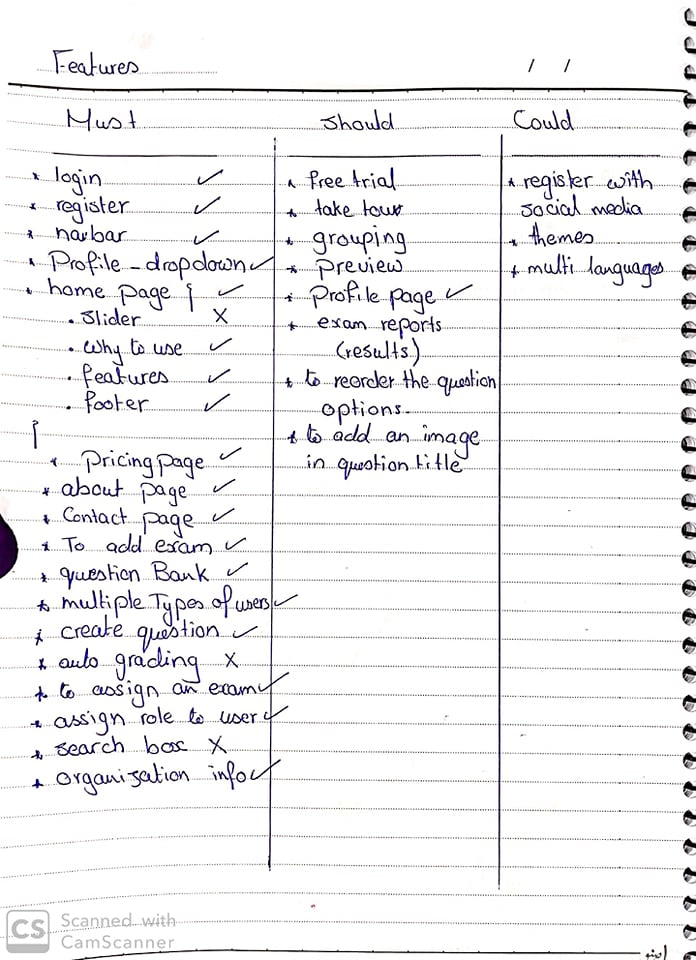 Features / /
Must
* login ✓
* register ✓
* navbar ✓
* Profile - dropdown ✓
* home page { ✓
• Slider X
• Why to use ✓
• features ✓
• footer ✓
}
* Pricing page ✓
* about page ✓
* Contact page ✓
* To add exam ✓
* question Bank ✓
* multiple Types of users ✓
* create question ✓
* auto grading X
* to assign an exam ✓
* assign role to user ✓
* search box X
* organisation info ✓
Should
* free trial
* take tour
* grouping
* preview
* Profile page ✓
* exam reports
(results)
* to reorder the question
options.
* to add an image
in question title
Could
* register with
social media
* themes
* multi languages
CS Scanned with
CamScanner